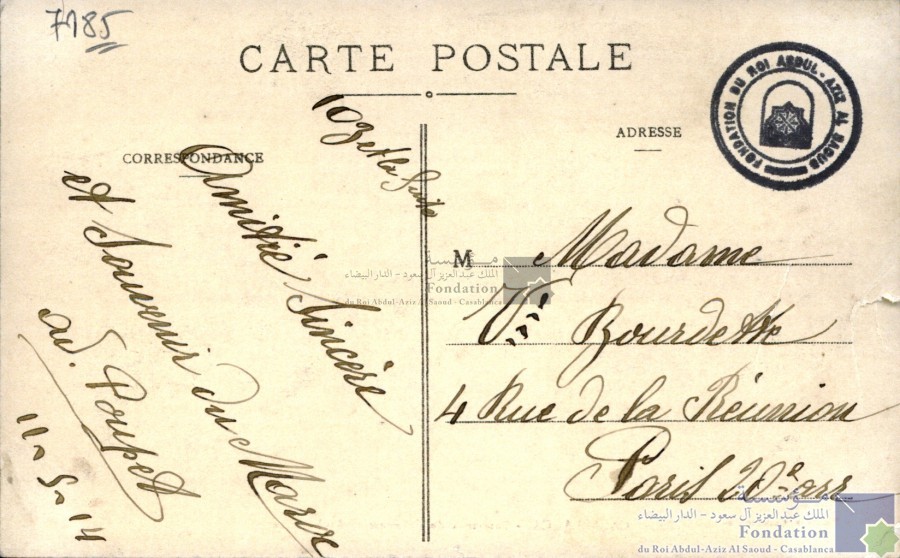 7185
CARTE POSTALE
CORRESPONDANCE
103 et la suite
Amitié Sincère
et Souvenir du Maroc
ad. Poupet
11-5-14
ADRESSE
FONDATION DU ROI ABDUL-AZIZ AL SAOUD
M Madame
Vve Bourdette
4 Rue de la Réunion
Paris 20e arr
مؤسسة
الملك عبدالعزيز آل سعود - الدار البيضاء
Fondation
du Roi Abdul-Aziz Al Saoud - Casablanca
مؤسسة
الملك عبدالعزيز آل سعود - الدار البيضاء
Fondation
du Roi Abdul-Aziz Al Saoud - Casablanca